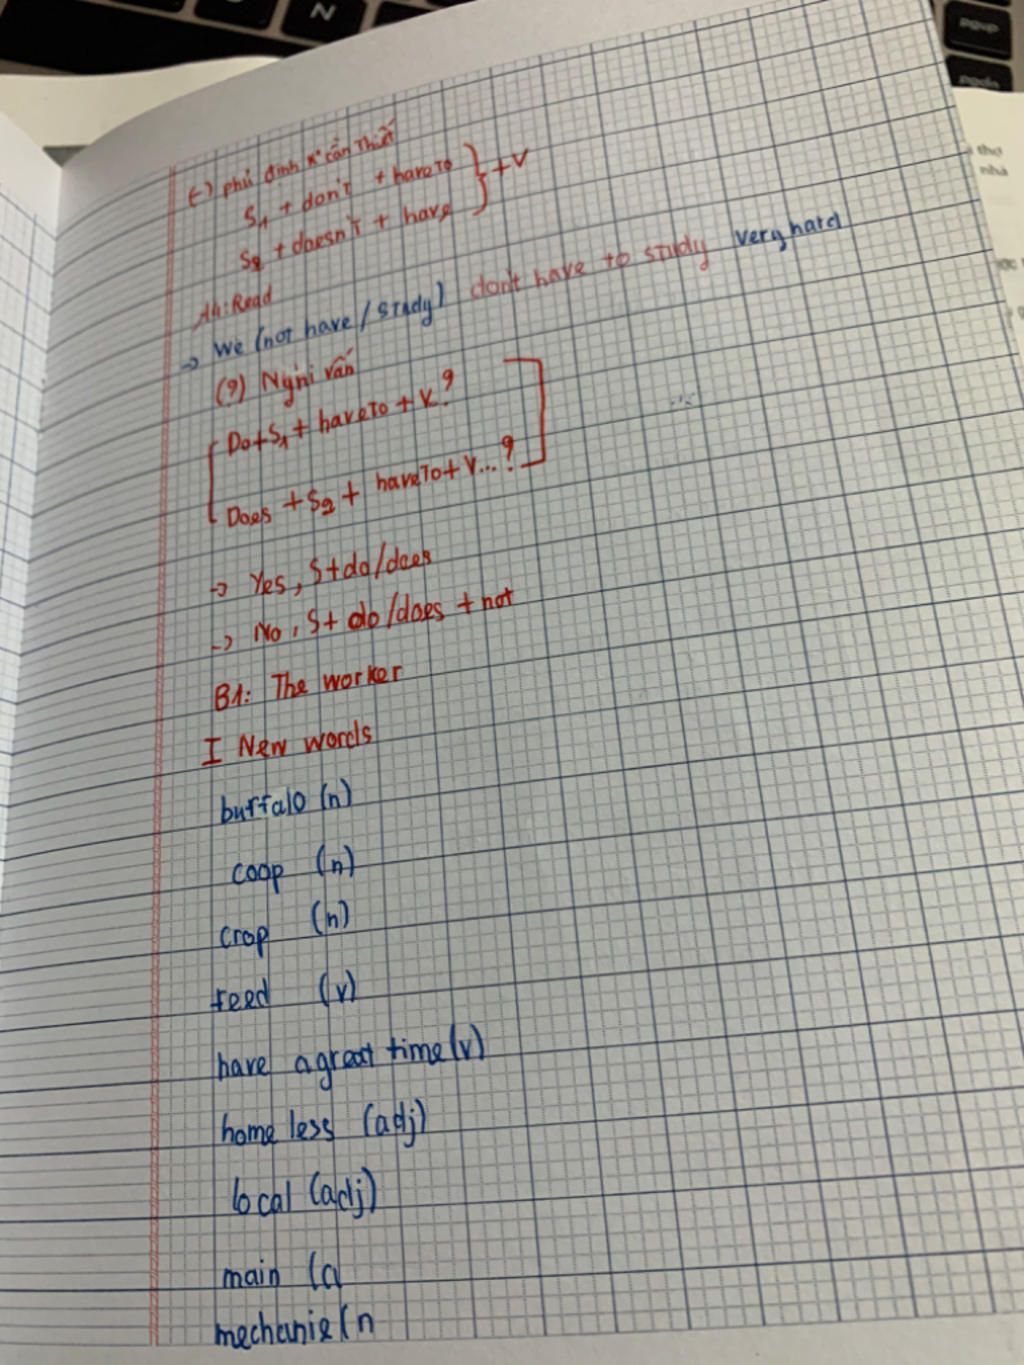 (-) phủ định K° cần thiết
S1 + don't + have to } + V
S2 + doesn't + have
A4: Read
→ We (not have / study) don't have to study very hard
(?) Nghi vấn
Do + S1 + have to + V ?
Does + S2 + have to + V... ?
→ Yes, S + do/does
→ No, S + do/does + not
B1: The worker
I New words
buffalo (n)
coop (n)
crop (n)
feed (v)
have a great time (v)
home less (adj)
local (adj)
main (a
mechanic (n